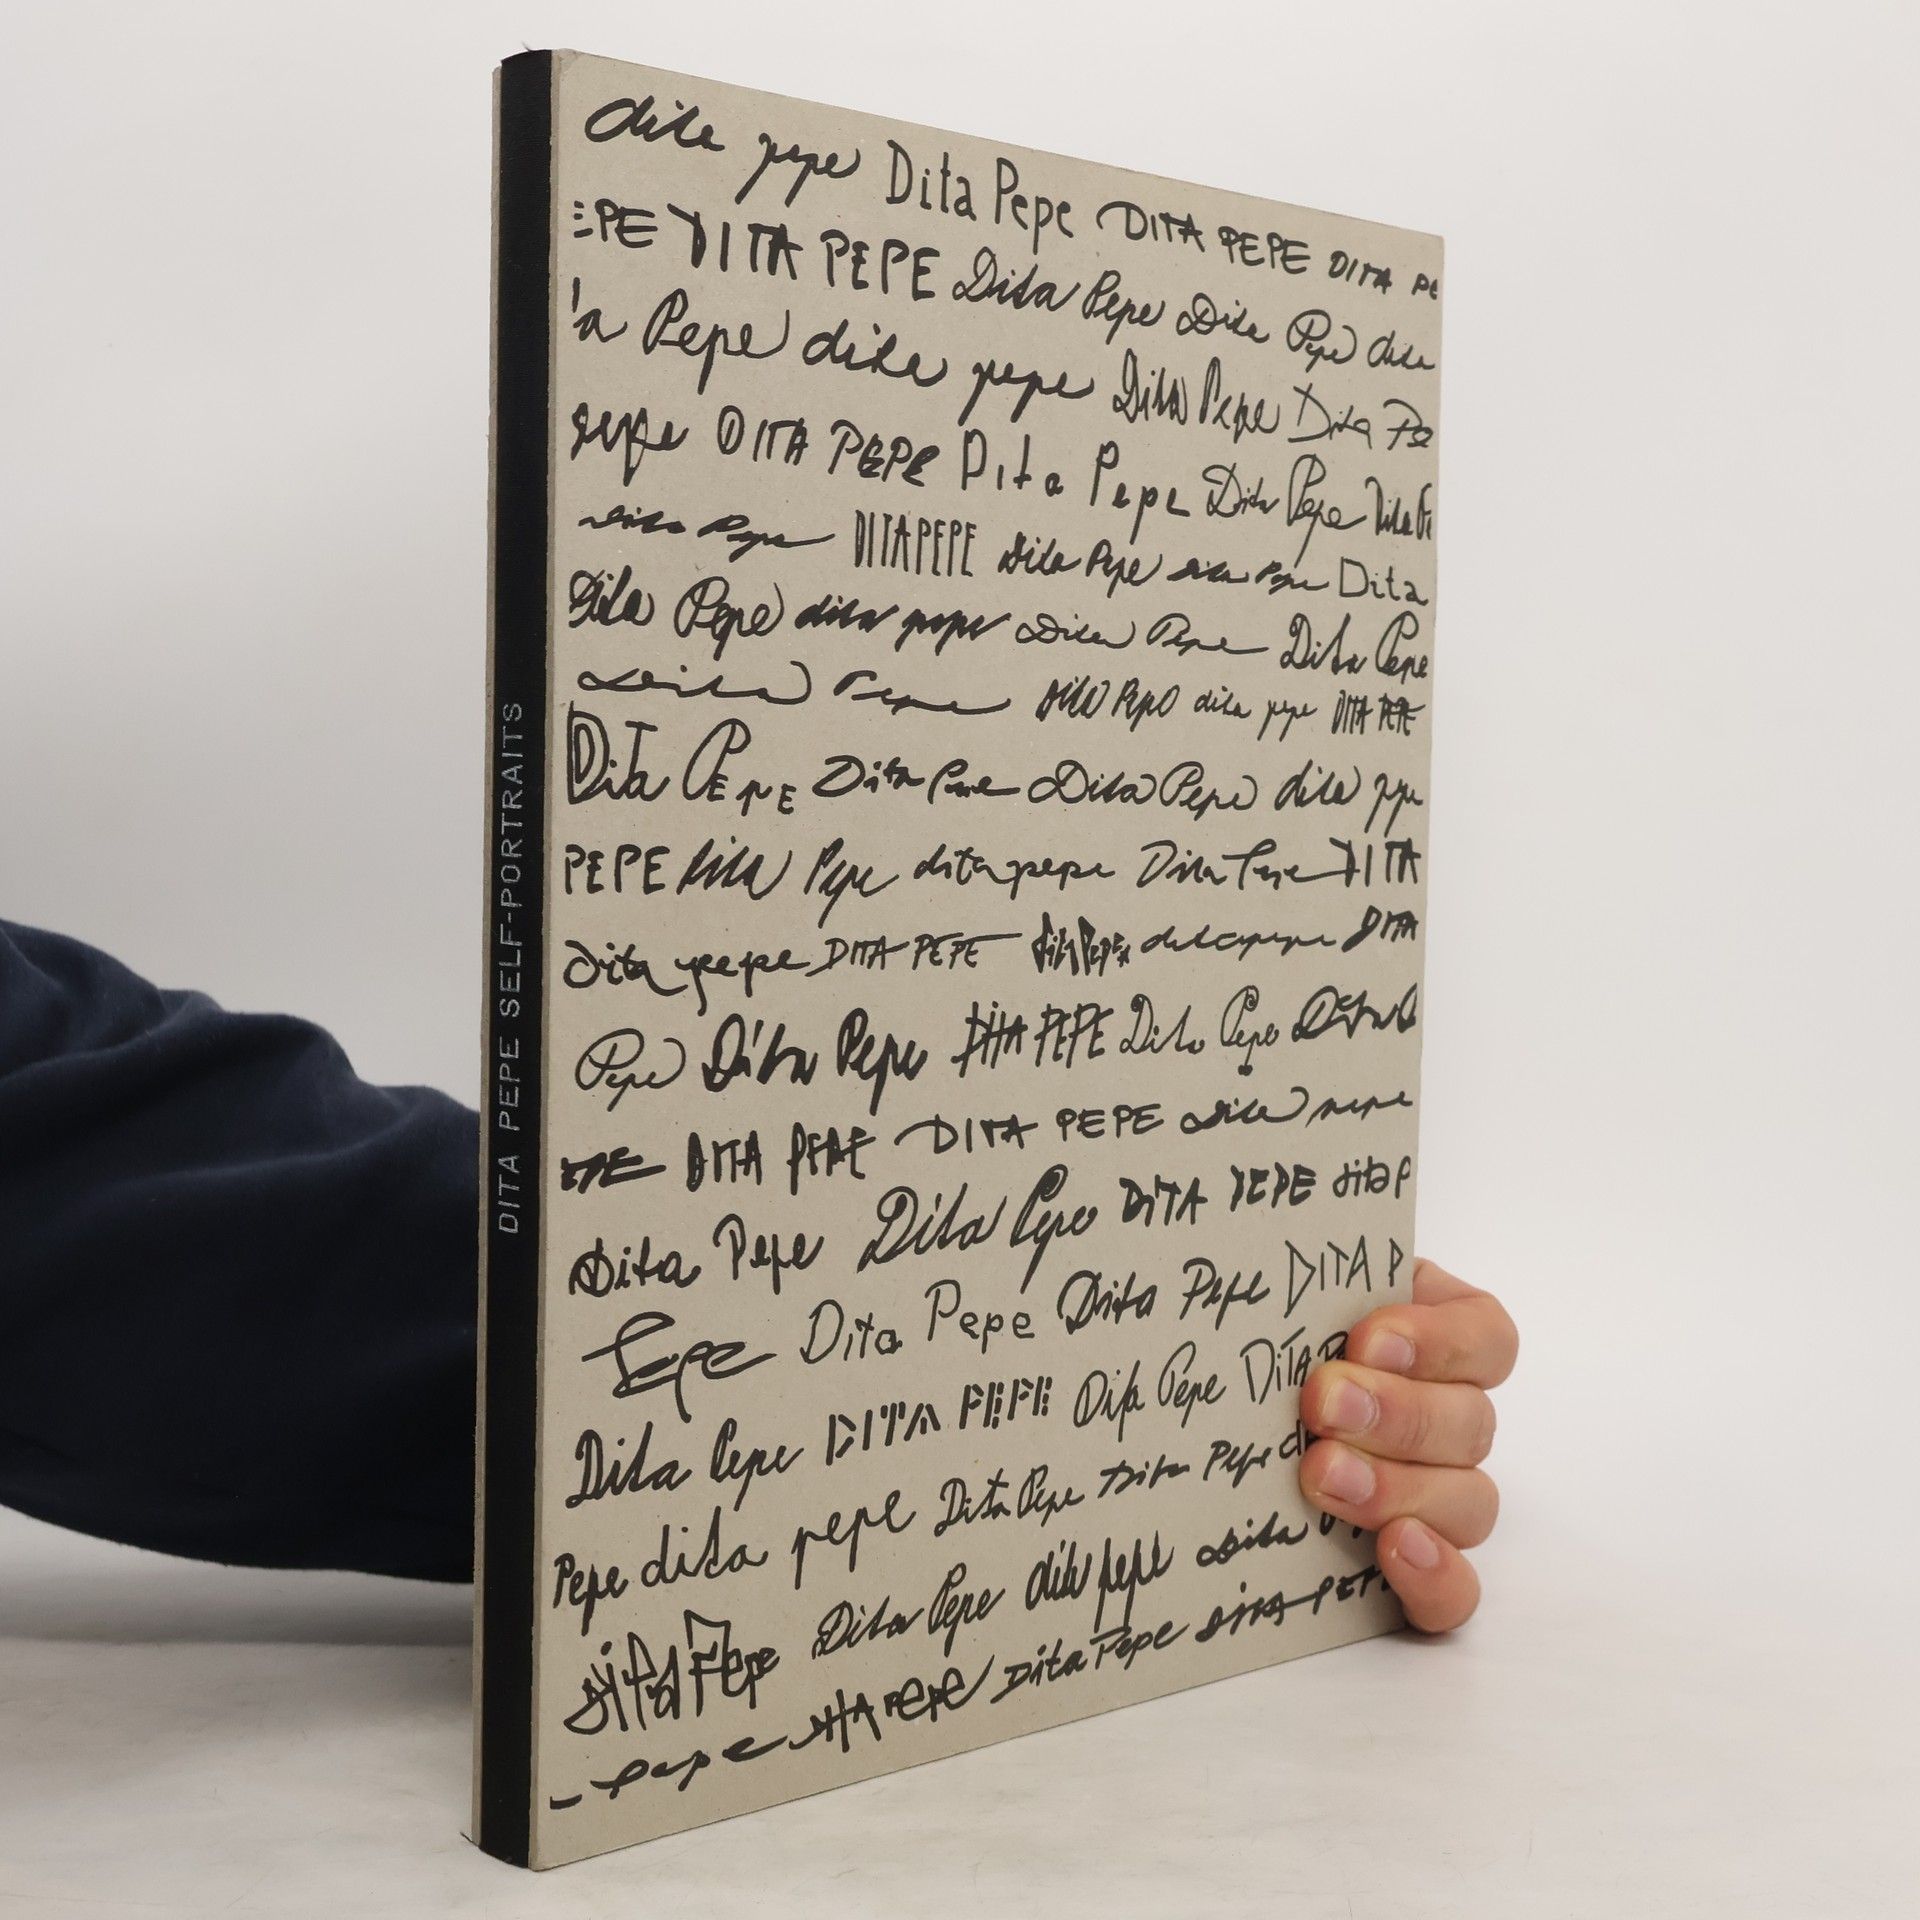 DITA PEPE SELF-PORTRAITS
dita pepe Dita Pepe DITA PEPE DITA PE
EPE DITA PEPE Dita Pepe Dita Pepe dita
a Pepe dita pepe Dita Pepe Dita Pe
pepe DITA PEPE Dita Pepe Dita Pepe Dita
Dita Pepe DITA PEPE Dita Pepe dita Pepe Dita
Dita Pepe dita pepe Dita Pepe Dita Pepe
Dita Pepe Dita Pepe dita pepe DITA PEPE
DiTa PEPE Dita Pepe Dita Pepe dita pepe
PEPE dita Pepe dita pepe Dita Pepe DITA
dita pepe DITA PEPE dita Pepe dita pepe DITA
Pepe Dita Pepe DITA PEPE Dita Pepe Dita
PE DITA PEPE DITA PEPE Dita pepe
Dita Pepe Dita Pepe DITA PEPE dita P
Pepe Dita Pepe Dita Pepe DITA P
Dita Pepe DITA PEPE Dita Pepe DiTA Pe
Pepe dita pepe Dita Pepe Dita Pepe di
Dita Pepe Dita Pepe dita pepe Dita
pepe DITA PEPE Dita Pepe DITA PEP